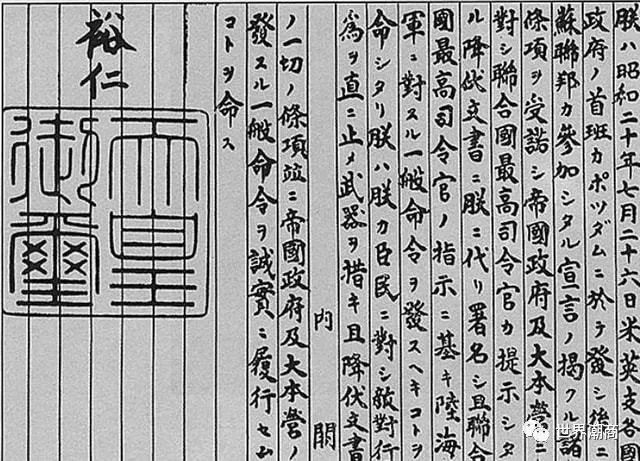 朕ハ昭和二十年七月二十六日米英支各國
政府ノ首班カポツダムニ於テ發シ後ニ
蘇聯邦カ參加シタル宣言ノ掲クル諸
條項ヲ受諾シ帝國政府及大本營ニ
對シ聯合國最高司令官カ提示シタ
ル降伏文書ニ朕ニ代リ署名シ且聯合
國最高司令官ノ指示ニ基キ陸海
軍ニ對スル一般命令ヲ發スヘキコトヲ
命シタリ朕ハ朕カ臣民ニ對シ敵對行
爲ヲ直ニ止メ武器ヲ措キ且降伏文書
内閣
ノ一切ノ條項竝ニ帝國政府及大本營ノ
發スル一般命令ヲ誠實ニ履行セム
コトヲ命ス
裕仁
天皇
御璽
世界潮商